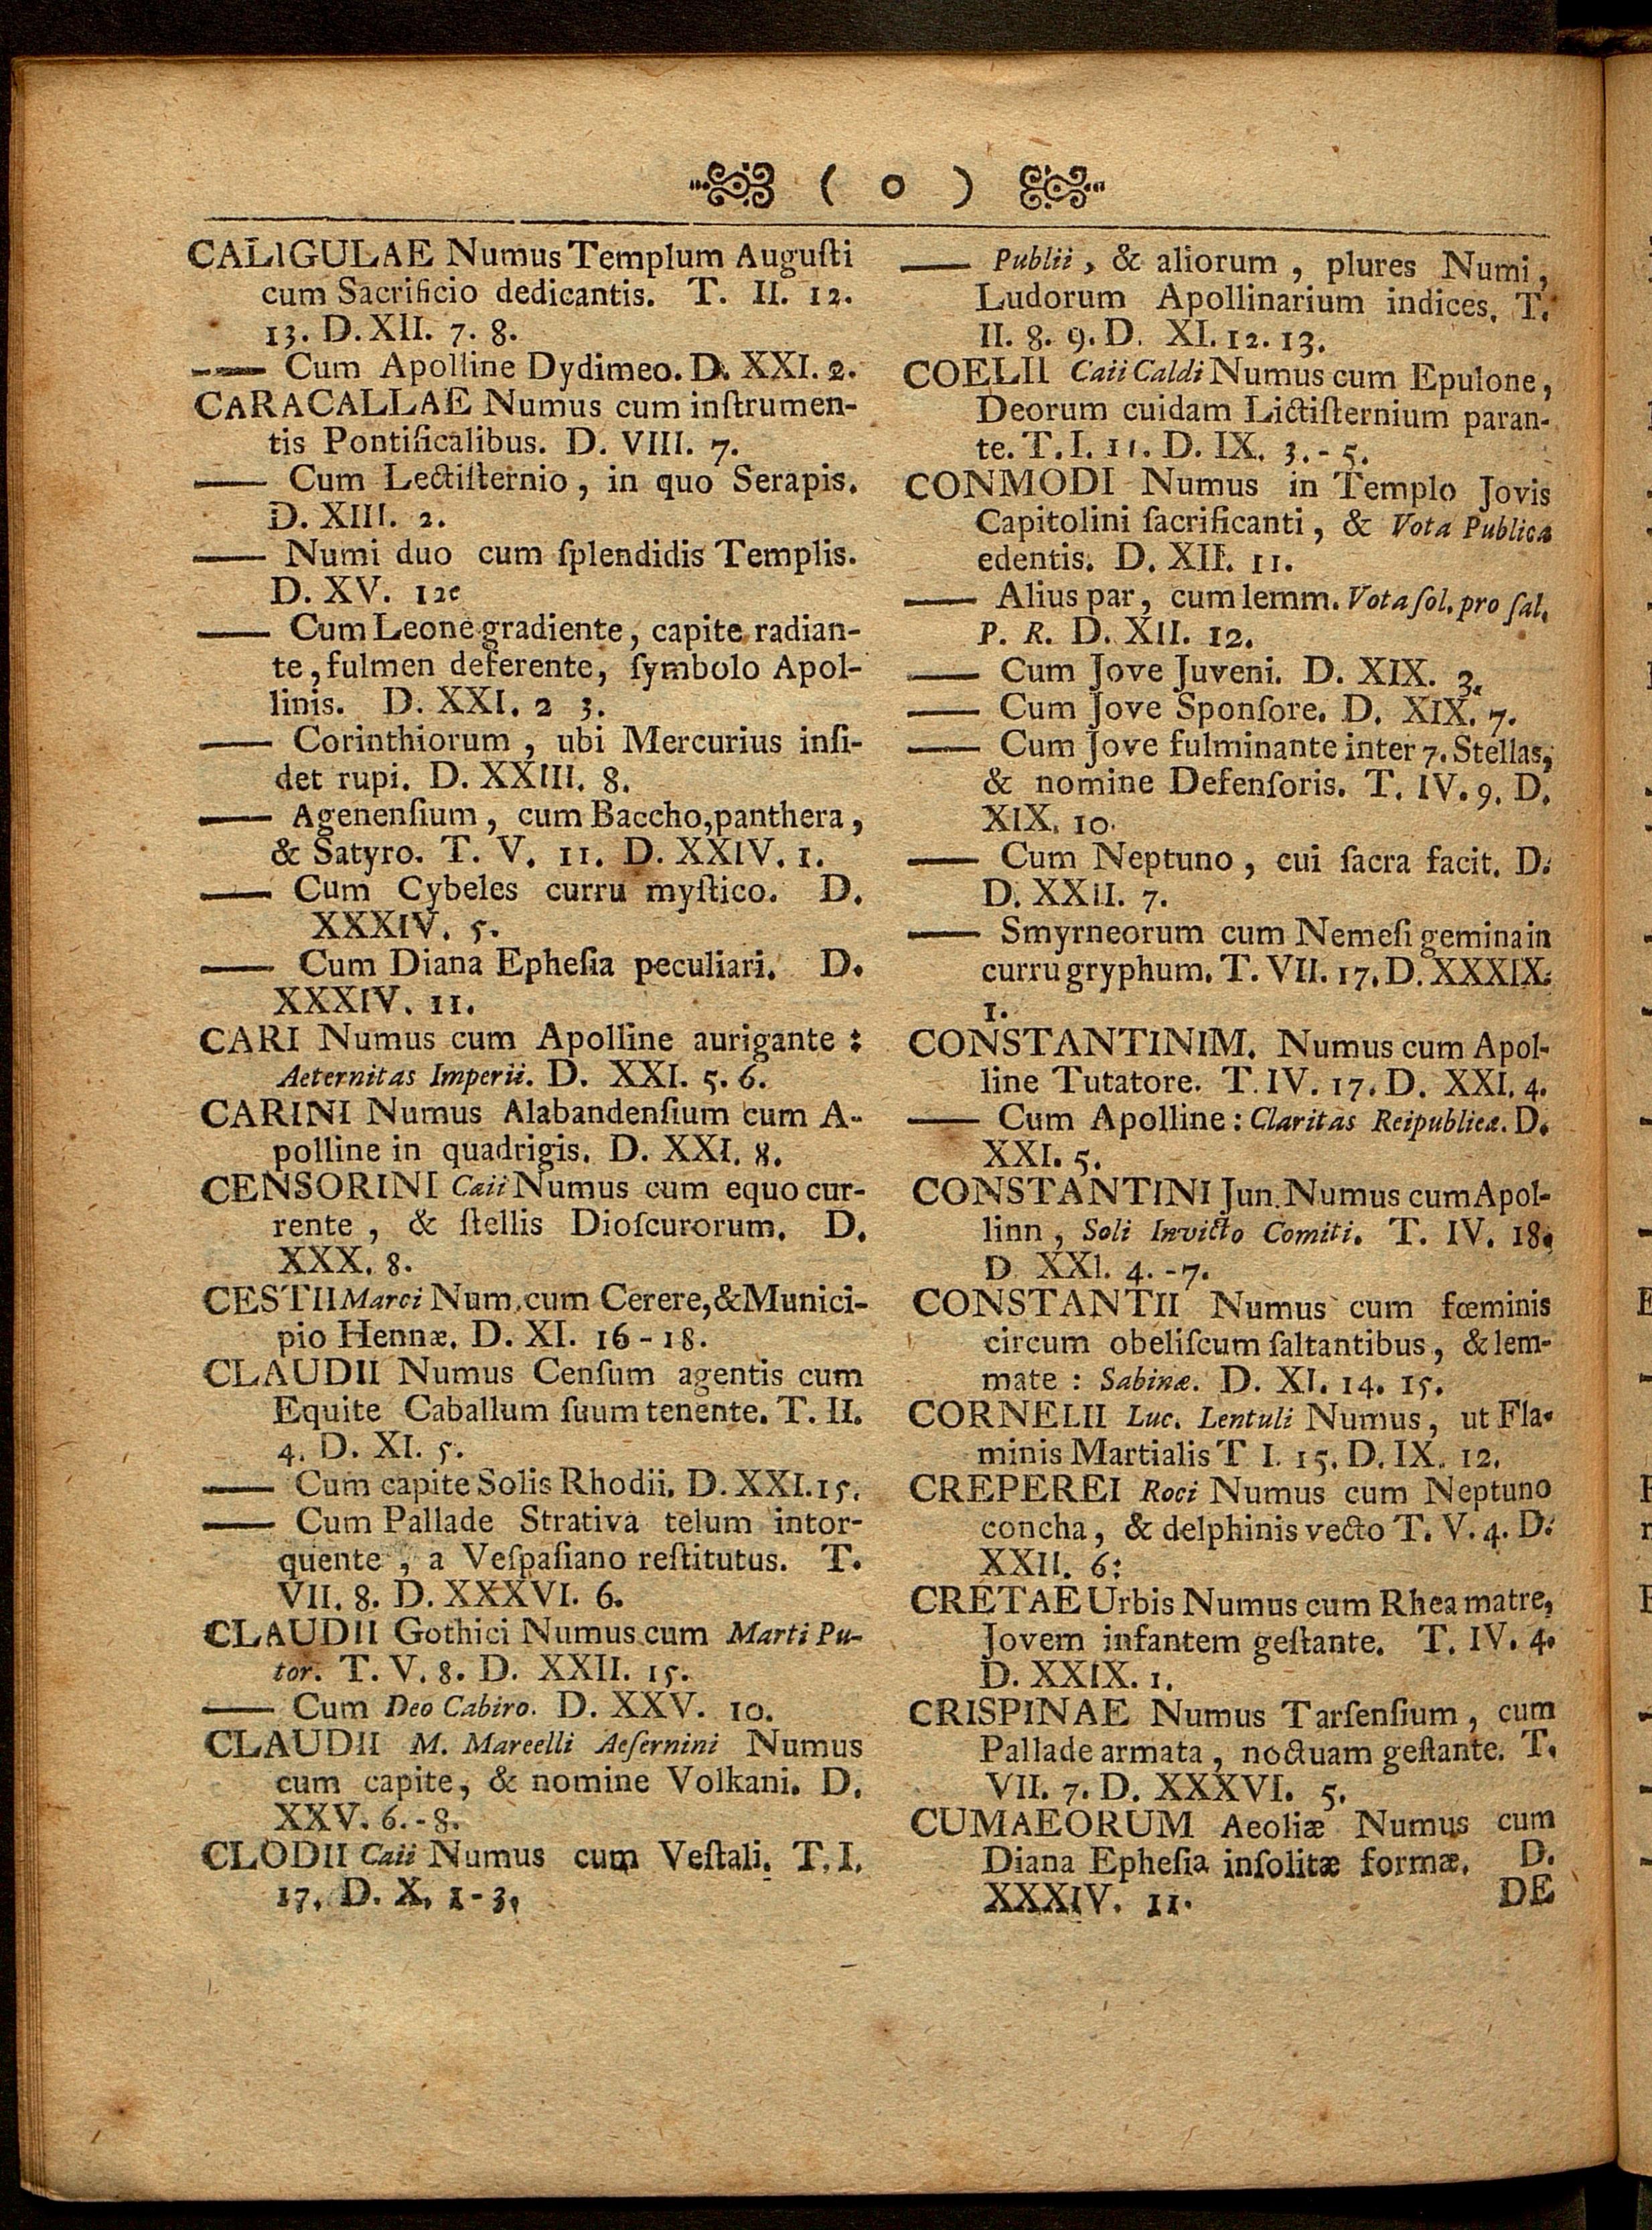 ( o )
CALIGULAE Numus Templum Auguſti
cum Sacrificio dedicantis. T. II. 12.
13. D. XII. 7. 8.
—— Cum Apolline Dydimeo. D. XXI. 2.
CARACALLAE Numus cum inſtrumen-
tis Pontificalibus. D. VIII. 7.
—— Cum Lectiſternio, in quo Serapis.
D. XIII. 2.
—— Numi duo cum ſplendidis Templis.
D. XV. 12c
—— Cum Leone gradiente, capite radian-
te, fulmen deferente, ſymbolo Apol-
linis. D. XXI. 2 3.
—— Corinthiorum, ubi Mercurius inſi-
det rupi. D. XXIII. 8.
—— Agenenſium, cum Baccho, panthera,
& Satyro. T. V. 11. D. XXIV. 1.
—— Cum Cybeles curru myſtico. D.
XXXIV. 5.
—— Cum Diana Epheſia peculiari. D.
XXXIV. 11.
CARI Numus cum Apolline aurigante:
Aeternitas Imperii. D. XXI. 5. 6.
CARINI Numus Alabandenſium cum A-
polline in quadrigis. D. XXI. 8.
CENSORINI Caii Numus cum equo cur-
rente, & ſtellis Dioſcurorum. D.
XXX. 8.
CESTII Marci Num. cum Cerere, & Munici-
pio Hennæ. D. XI. 16-18.
CLAUDII Numus Cenſum agentis cum
Equite Caballum ſuum tenente. T. II.
4. D. XI. 5.
—— Cum capite Solis Rhodii. D. XXI. 15.
—— Cum Pallade Strativa telum intor-
quente, a Veſpaſiano reſtitutus. T.
VII. 8. D. XXXVI. 6.
CLAUDII Gothici Numus cum Marti Pu-
tor. T. V. 8. D. XXII. 15.
—— Cum Deo Cabiro. D. XXV. 10.
CLAUDII M. Mareelli Aeſernini Numus
cum capite, & nomine Volkani. D.
XXV. 6.-8.
CLODII Caii Numus cum Veſtali. T. I.
17. D. X. 1-3.
—— Publii, & aliorum, plures Numi,
Ludorum Apollinarium indices. T.
II. 8. 9. D. XI. 12. 13.
COELII Caii Caldi Numus cum Epulone,
Deorum cuidam Lictiſternium paran-
te. T. I. 11. D. IX. 3.-5.
CONMODI Numus in Templo Jovis
Capitolini ſacrificanti, & Vota Publica
edentis. D. XII. 11.
—— Alius par, cum lemm. Vota ſol. pro ſal.
P. R. D. XII. 12.
—— Cum Jove Juveni. D. XIX. 3.
—— Cum Jove Sponſore. D. XIX. 7.
—— Cum Jove fulminante inter 7. Stellas,
& nomine Defenſoris. T. IV. 9. D.
XIX. 10.
—— Cum Neptuno, cui ſacra facit. D.
D. XXII. 7.
—— Smyrneorum cum Nemeſi gemina in
curru gryphum. T. VII. 17. D. XXXIX.
1.
CONSTANTINI M. Numus cum Apol-
line Tutatore. T. IV. 17. D. XXI. 4.
—— Cum Apolline: Claritas Reipublicæ. D.
XXI. 5.
CONSTANTINI Jun. Numus cum Apol-
linn, Soli Invicto Comiti. T. IV. 18.
D XXI. 4.-7.
CONSTANTII Numus cum fœminis
circum obeliſcum ſaltantibus, & lem-
mate: Sabinæ. D. XI. 14. 15.
CORNELII Luc. Lentuli Numus, ut Fla-
minis Martialis T I. 15. D. IX. 12.
CREPEREI Roci Numus cum Neptuno
concha, & delphinis vecto T. V. 4. D.
XXII. 6:
CRETAE Urbis Numus cum Rhea matre,
Jovem infantem geſtante. T. IV. 4.
D. XXIX. 1.
CRISPINAE Numus Tarſenſium, cum
Pallade armata, noctuam geſtante. T.
VII. 7. D. XXXVI. 5.
CUMAEORUM Aeoliæ Numus cum
Diana Epheſia inſolitæ formæ. D.
XXXIV. 11.
DE